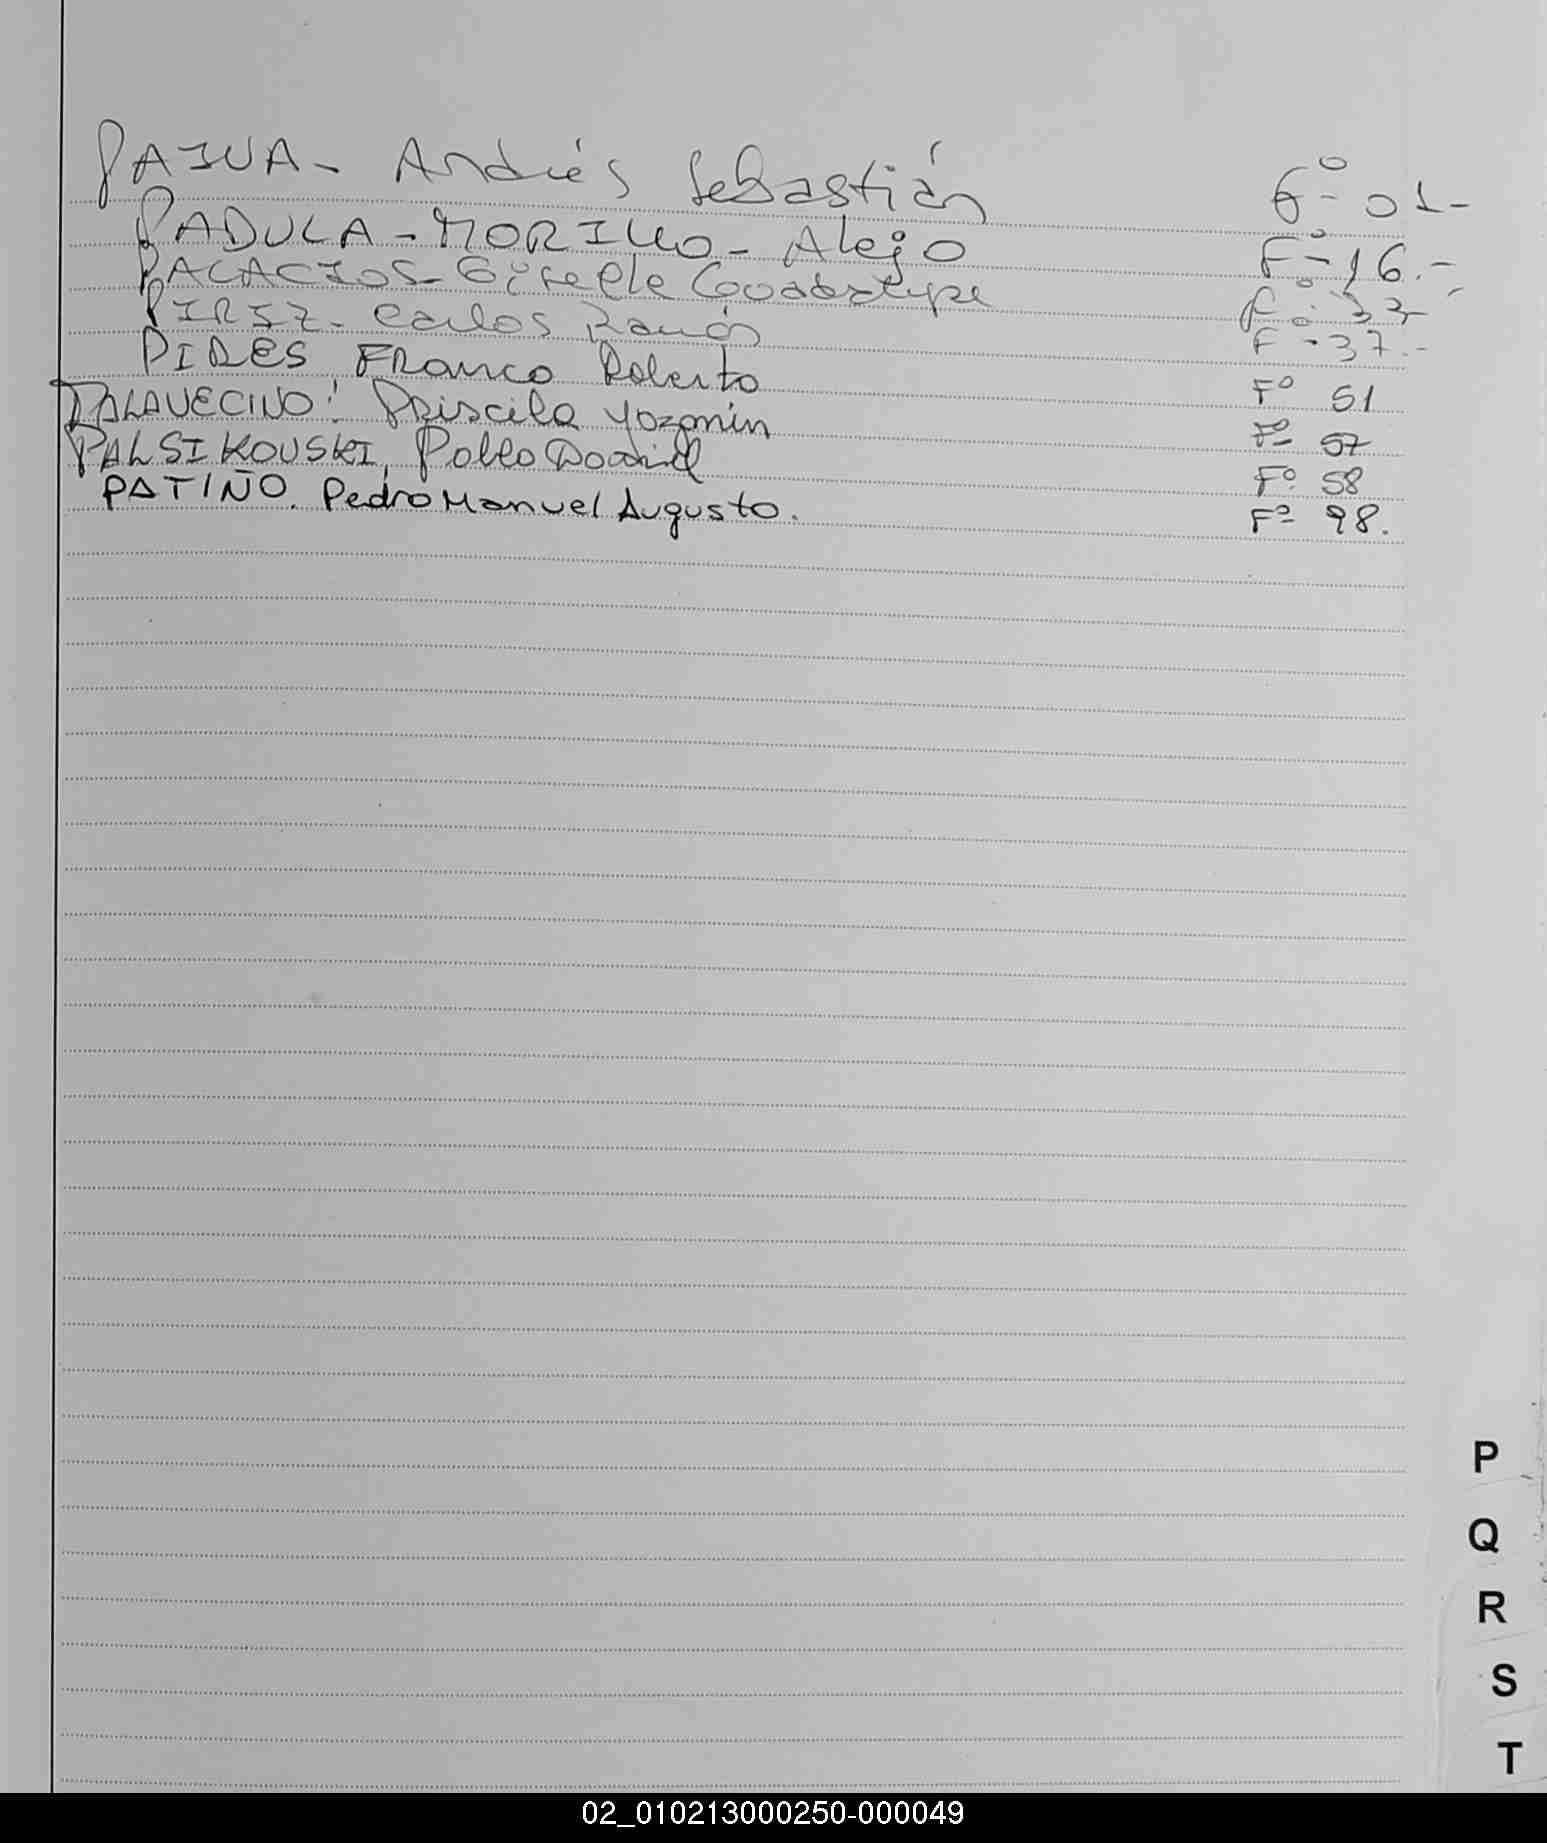 PAIVA - Andrés Sebastián Fº 01-
PADULA - MORILLO - Alejo Fº 16.-
PALACIOS - Giselle Guadalupe Fº 33-
PIRIZ - Carlos Ramón Fº 37.-
PIRES Franco Roberto Fº 51
PALAVECINO: Priscila Yazmin Fº 57
PALSIKOUSKI, Pablo Daniel Fº 58
PATIÑO. Pedro Manuel Augusto. Fº 98.
P
Q
R
S
T
02_010213000250-000049